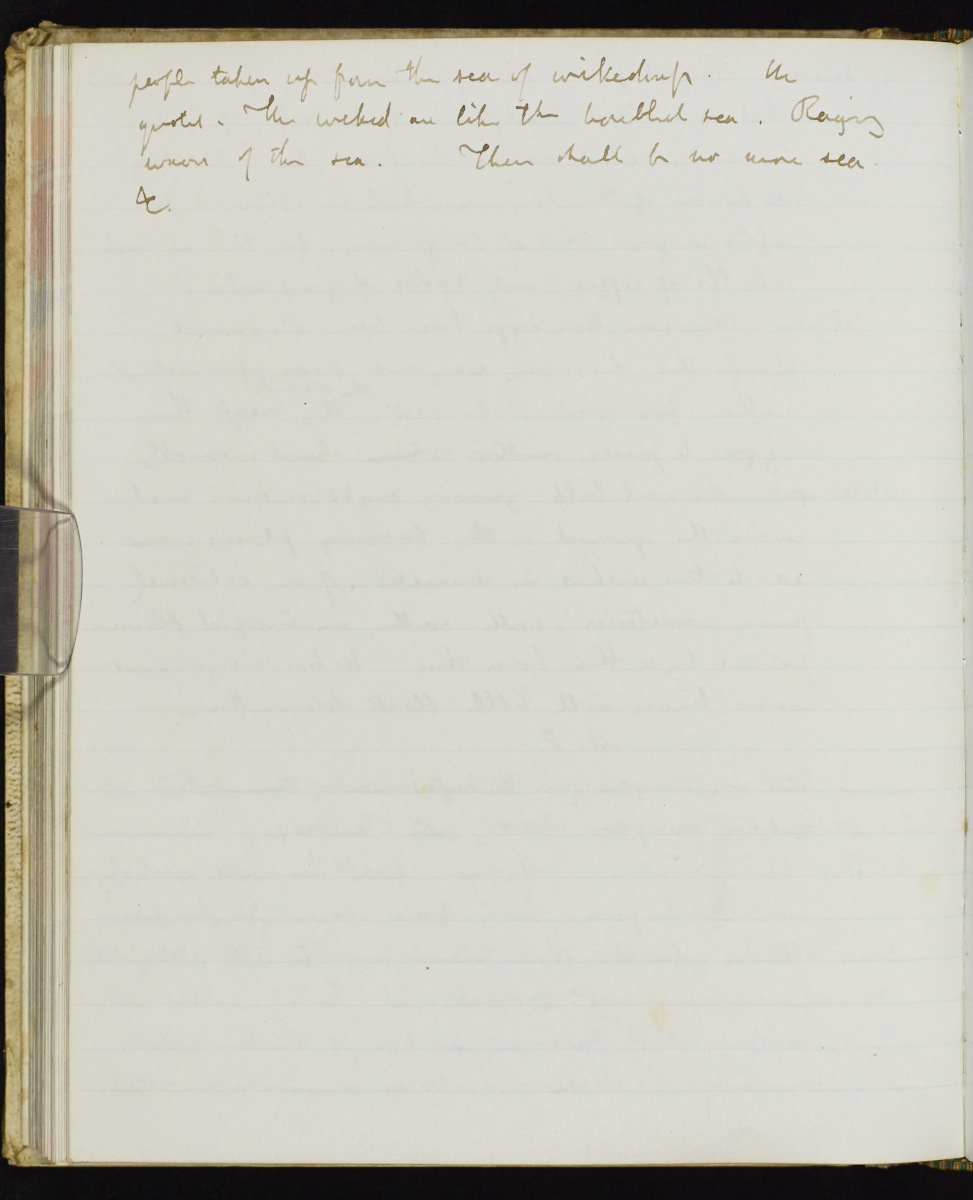 people taken up from the sea of wickedness. He
quotes. The wicked are like the troubled sea. Raging
waves of the sea. There shall be no more sea.
&c.